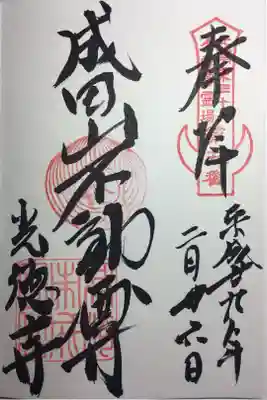 奉拝
平成廿九年
二月廿六日
成田山不動尊
光徳寺